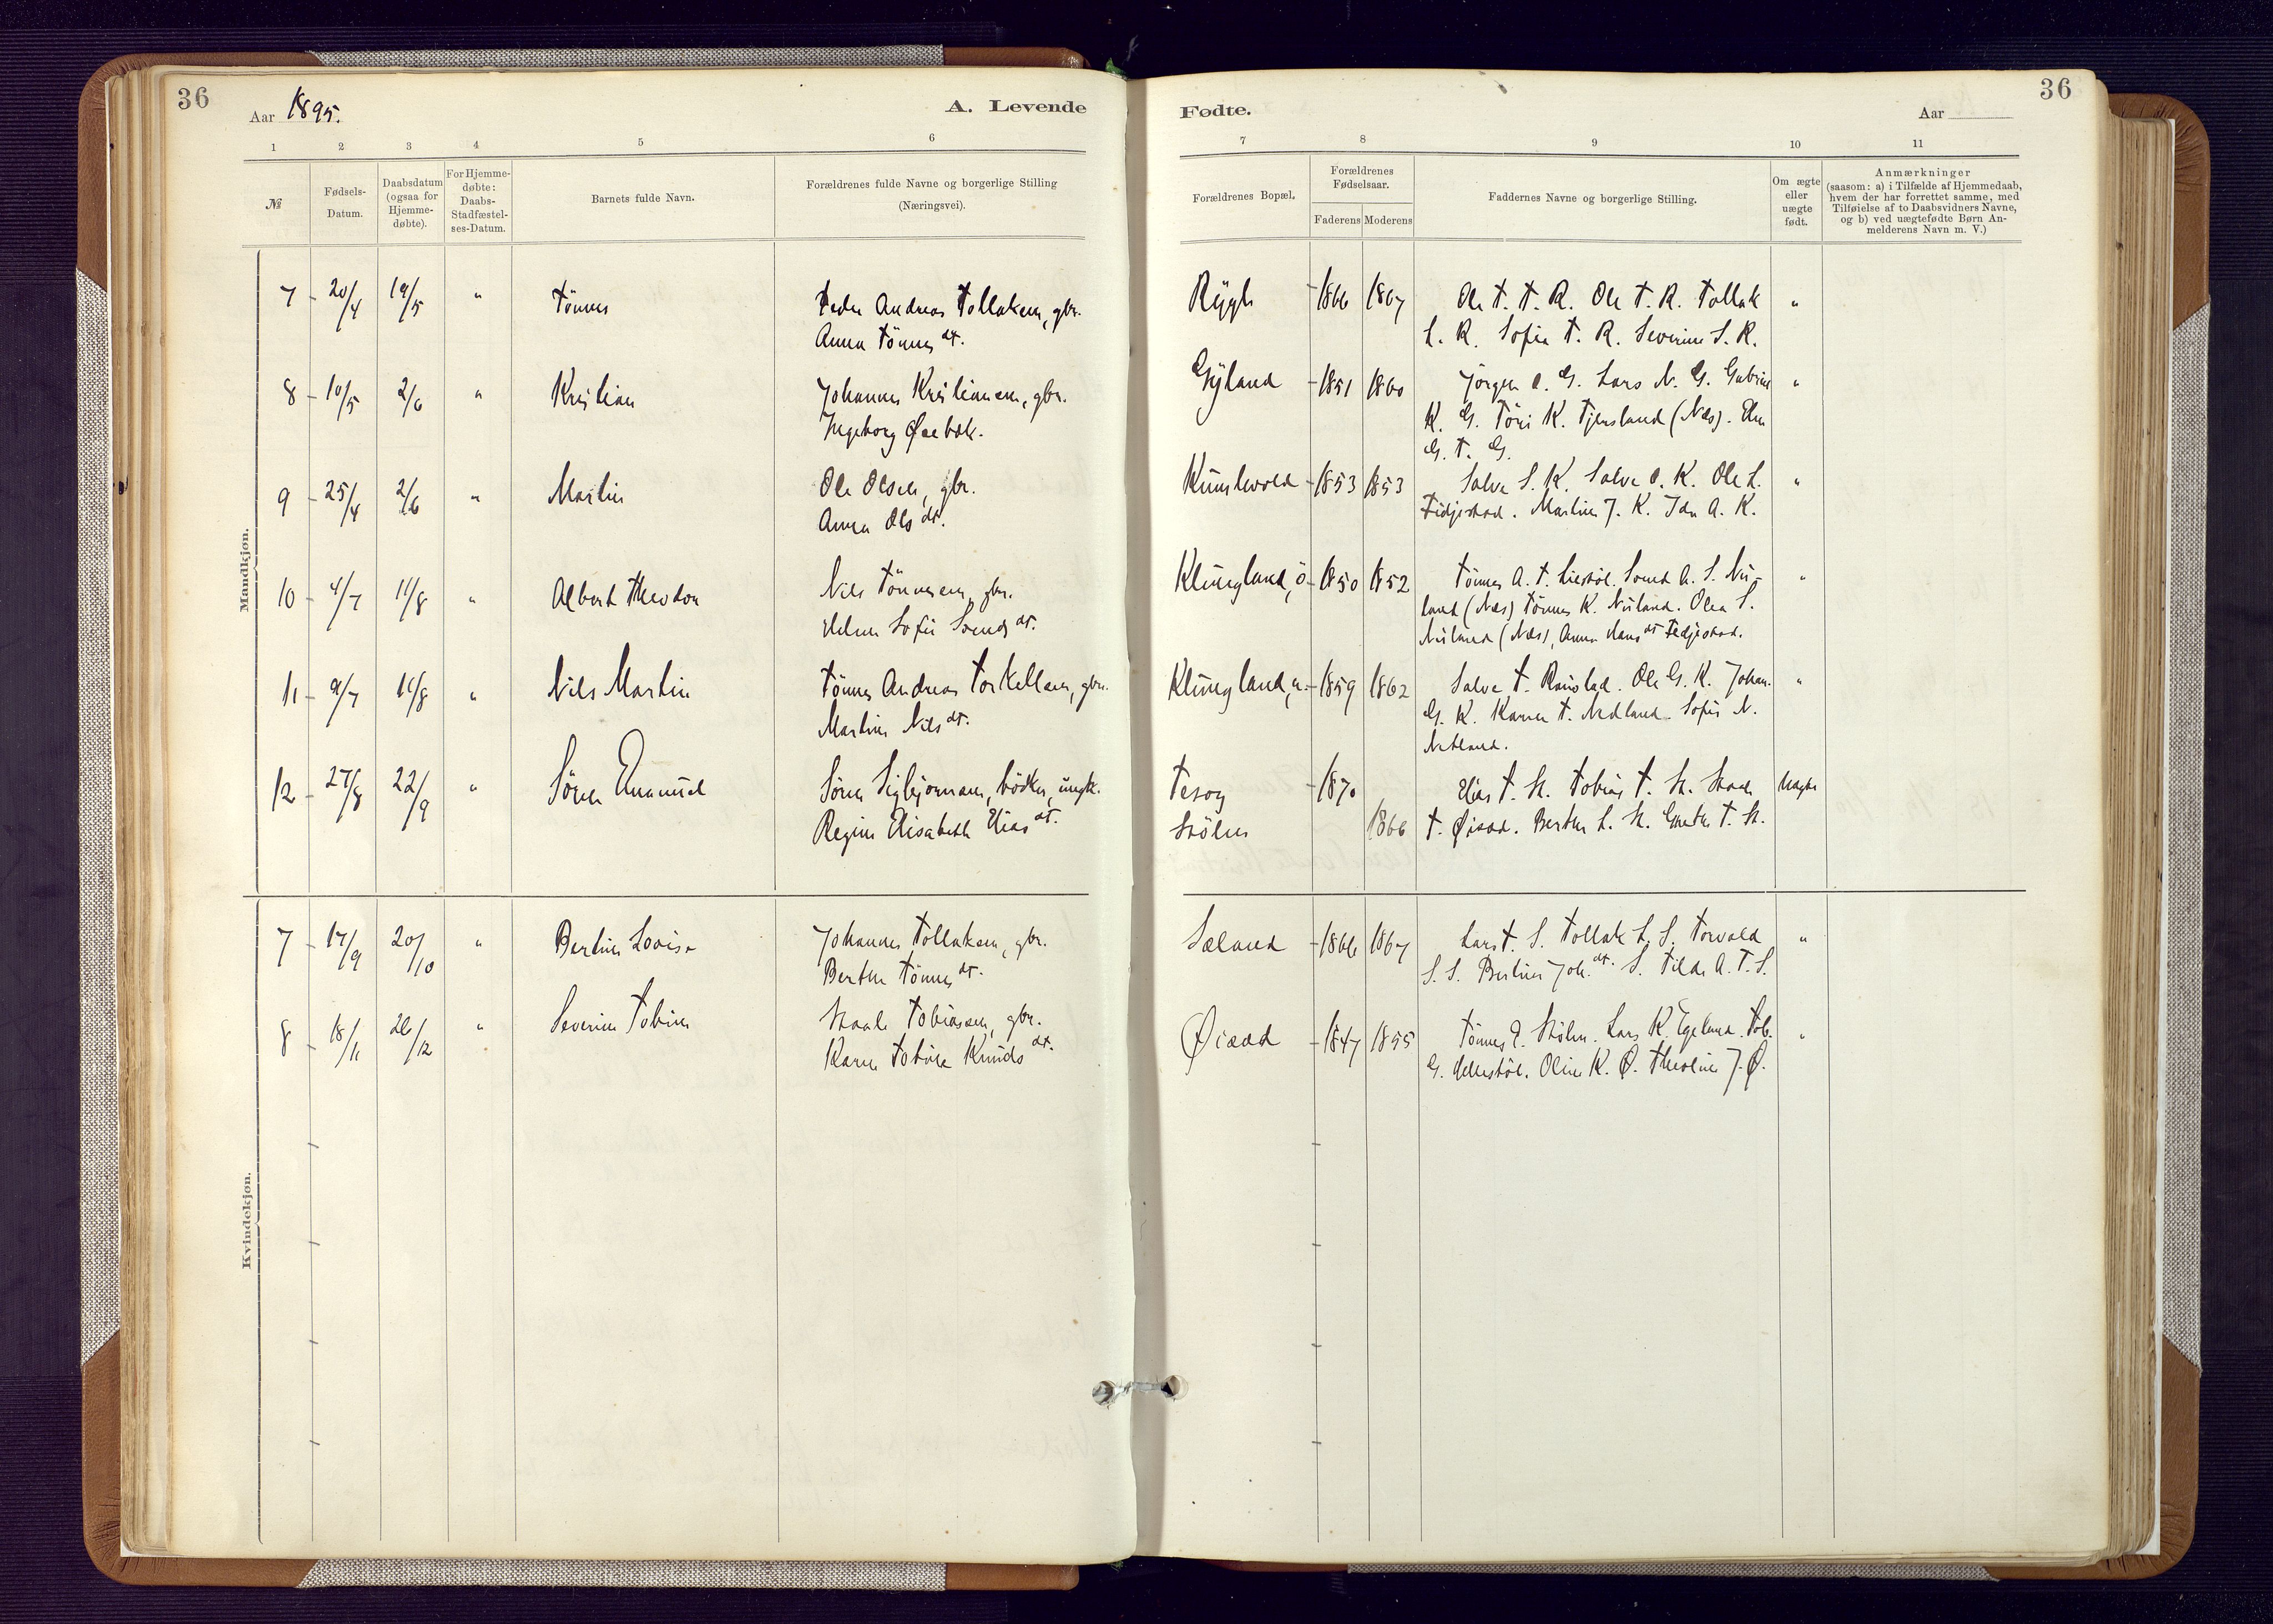 36
Aar 1895.
A. Levende
1 2 3 4 5 6
№
Fødsels-
Datum.
Daabsdatum
(ogsaa for
Hjemme-
døbte).
For Hjemme-
døbte:
Daabs-
Stadfæstel-
ses-Datum.
Barnets fulde Navn.
Forældrenes fulde Navne og borgerlige Stilling
(Næringsvei).
Mandkjøn.
7 - 20/4 19/5 " Tönnes Peder Andreas Tollaksen, gbr.
Anna Tönnesdt.
8 - 10/5 2/6 " Kristian Johannes Kristiansen, gbr.
Ingeborg
9 - 25/4 2/6 " Martin Ole Olsen, gbr.
Anna Olsdt.
10 - 4/7 11/8 " Albert Theodor Nils Tönnesen, gbr.
Sofie
11 - 9/7 11/8 " Nils Martin Tönnes Andreas Torkellsen, gbr.
Martine Nilsdt.
12 - 27/8 22/9 " Sören Emanuel Sören Sigbjörnsen, bödker, ungk.
Regine Elisabeth Eliasdt.
Kvindekjøn.
7 - 17/9 20/10 " Bertine Lovise Johannes Tollaksen, gbr.
Berthe Tönnesdt.
8 - 18/11 26/12 " Severine Tobine Staale Tobiassen, gbr.
Karen Tobine Knudsdt.
Fødte.
Aar
36
7 8 9 10 11
Forældrenes Bopæl.
Forældrenes
Fødselsaar.
Faderens Moderens
Faddernes Navne og borgerlige Stilling.
Om ægte
eller
uægte
født.
Anmærkninger
(saasom: a) i Tilfælde af Hjemmedaab,
hvem der har forrettet samme, med
Tilføielse af to Daabsvidners Navne,
og b) ved uægtefødte Børn An-
melderens Navn m. V.)
Rygh - 1866 1867 Ole T. T. R. Ole T. R. Tollak "
L. R. Sofie T. R. Severine S. R.
Gyland - 1851 1860 Jörgen O. G. Lars N. G. Gabriel "
K. G. Töri K. Tjersland (Næs).
G. T. G.
Kunlevold - 1853 1853 Salve S. K. Salve O. K. Ole L. "
Fidjestad. Martine J. K. Ida A. K.
Klungland, ö - 1850 1852 Tönnes A. T. Liestöl. A. S. Nu- "
land (Næs) Tönnes K. Nuland. Olea S.
Nuland (Næs), Anna Hansdt Fedjestad.
Klungland, n. - 1859 1862 Salve T. Ole G. K. Johan. "
G. K. Karen T. Nedland. Sofie N.
Netland.
Tesog - 1870 Elias T. St. Tobias T. St. Staale Uægte
Stölen 1866 T. Øisæd. Berthe L. St. Grethe T. St.
Sæland - 1866 1867 Lars T. S. Tollak L. S. Torvald "
S. S. Bertine Joh.dt. S. Tilda A. T. S.
Øisæd - 1847 1855 Tönnes E. Stölen. Lars K. Egeland. Tob. "
G. Oline K. Ø. Theoline J. Ø.